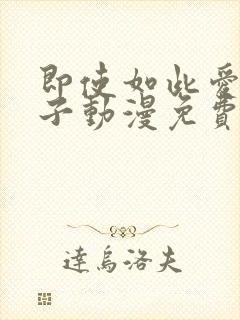 即使如此愛
子動漫免費
達烏洛夫